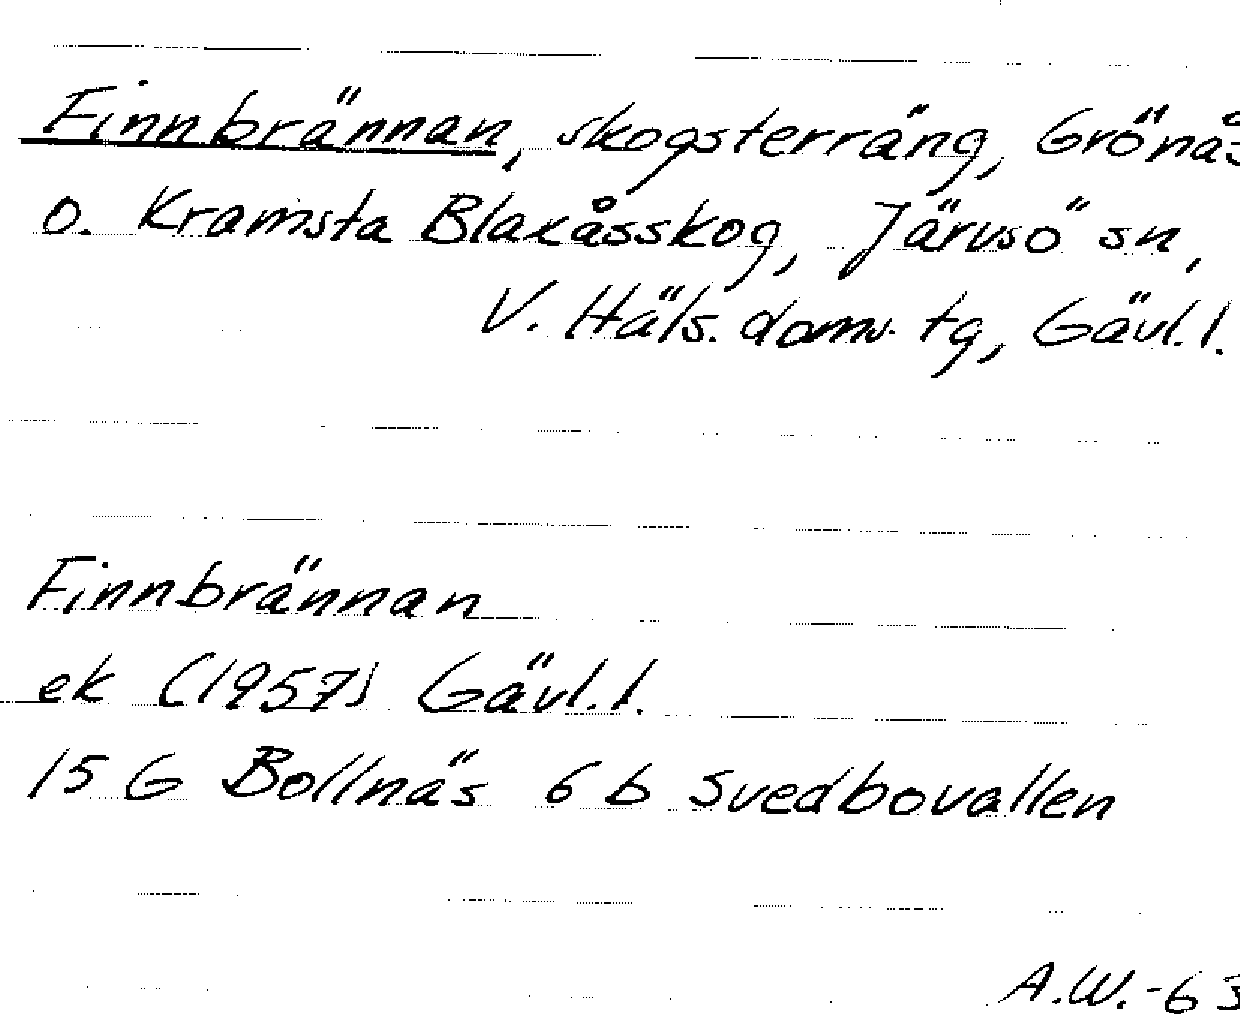 Finnbrännan, skogsterräng, Grönås
o. Kramsta Blaxåsskog, Järvsö sn,
V. Häls. doms. tg, Gävl. l.
Finnbrännan
ek (1957) Gävl. l.
15 G Bollnäs 6 b Svedbovallen
A.W.-63